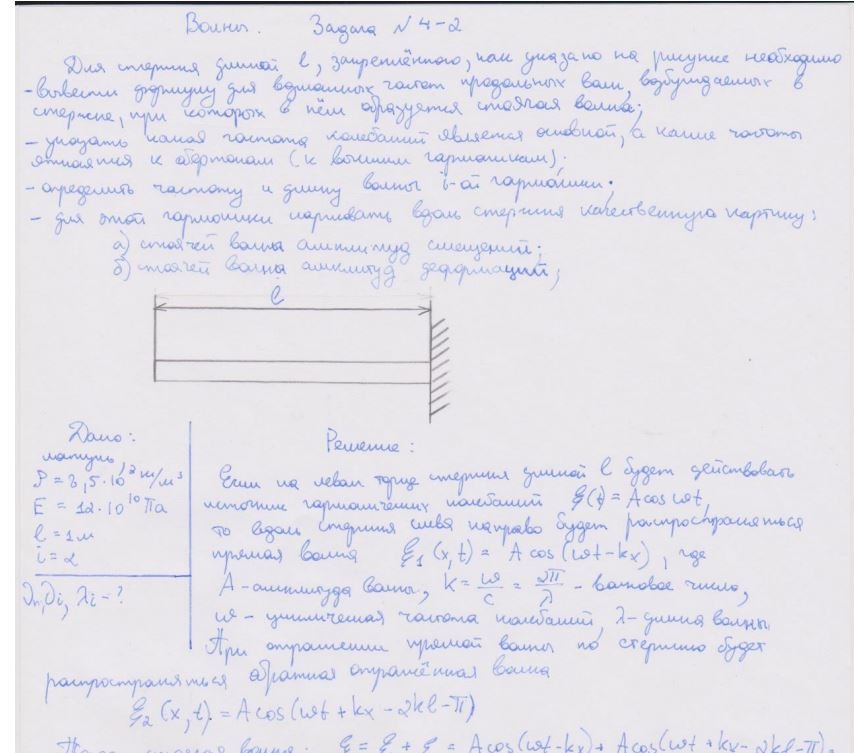 Волны. Задача №4-2
Для стержня длиной l, закреплённого, как указано на рисунке необходимо
- вывести формулу для возможных частот продольных волн, возбуждаемых в
стержне, при которых в нём образуется стоячая волна;
- указать какая частота колебаний является основной, а какие частоты
относятся к обертонам (к высшим гармоникам);
- определить частоту и длину волны i-ой гармоники;
- для этой гармоники нарисовать вдоль стержня качественную картину:
а) стоячей волны амплитуд смещений;
б) стоячей волны амплитуд деформаций;
l
Дано:
латунь,
ρ = 8,5·10³ кг/м³
E = 12·10¹⁰ Па
l = 1м
i = 2
νₙ, νᵢ, λᵢ - ?
Решение:
Если на левом торце стержня длиной l будет действовать
источник гармонических колебаний ξ(t) = A cos ωt,
то вдоль стержня слева направо будет распространяться
прямая волна ξ₁(x,t) = A cos(ωt - kx), где
A - амплитуда волны, k = ω/c = 2π/λ - волновое число,
ω - циклическая частота колебаний, λ - длина волны.
При отражении прямой волны по стержню будет
распространяться обратная отражённая волна
ξ₂(x,t) = A cos(ωt + kx - 2kl - π)
стоячая волна: ξ = ξ + ξ = A cos(ωt - kx) + A cos(ωt + kx - 2kl - π) =